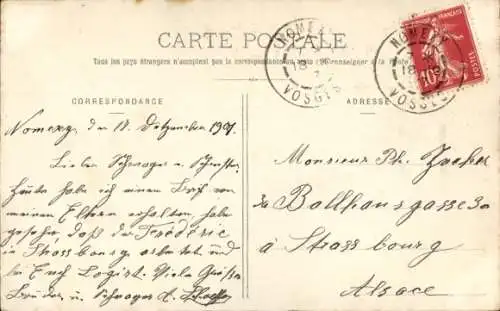 CARTE POSTALE
Tous les pays étrangers n'acceptent pas la correspondance au recto (Se renseigner à la Poste)
CORRESPONDANCE
ADRESSE
NOMENY
VOSGES
NOMENY
VOSGES
FRANÇAISE
POSTES
10
den 18. Dezember 1907.
Lieber Schwager u. Schwester
Heute habe ich einen Brief von
meinen Eltern erhalten, habe
gesehen, daß der Frédéric
in Strassbourg arbeitet und
bei Euch Logirt. Viele Grüße
Bruder u. Schwager A.
Monsieur Ph.
Ballhausgasse 30
à Strassbourg
Alsace